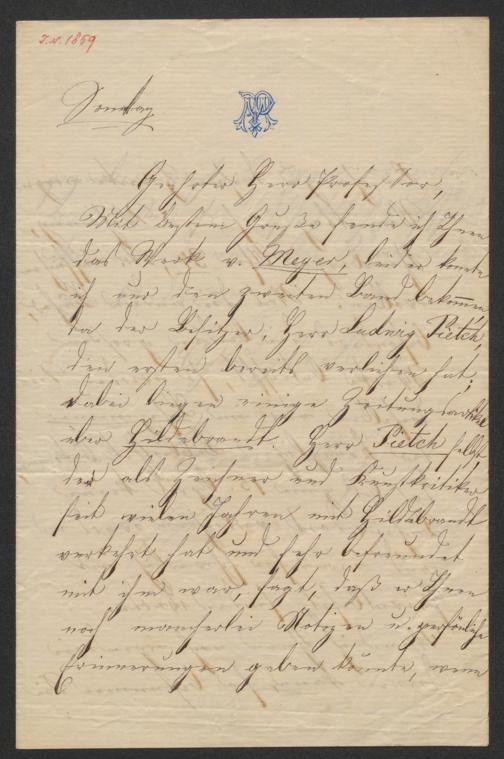 I.N. 1859
Sonntag
Geehrter Herr Professor,
Mit bestem Gruße sende ich Ihnen
das Werk v. Meyer, leider konnte
ich nur den zweiten Band bekom̄en,
da der Besitzer, Herr Ludwig Pietch,
den ersten bereits verliehen hat,
dabei liegen einige Zeitungsartikel
über Hildebrandt. Herr Pietch selbst,
der als Zeichner und Kunstkritiker
seit vielen Jahren mit Hildebrandt
verkehrt hat und sehr befreundet
mit ihm war, sagt, daß er Ihnen
noch mancherlei Notizen u. persönliche
Erinnerungen geben könnte, wenn